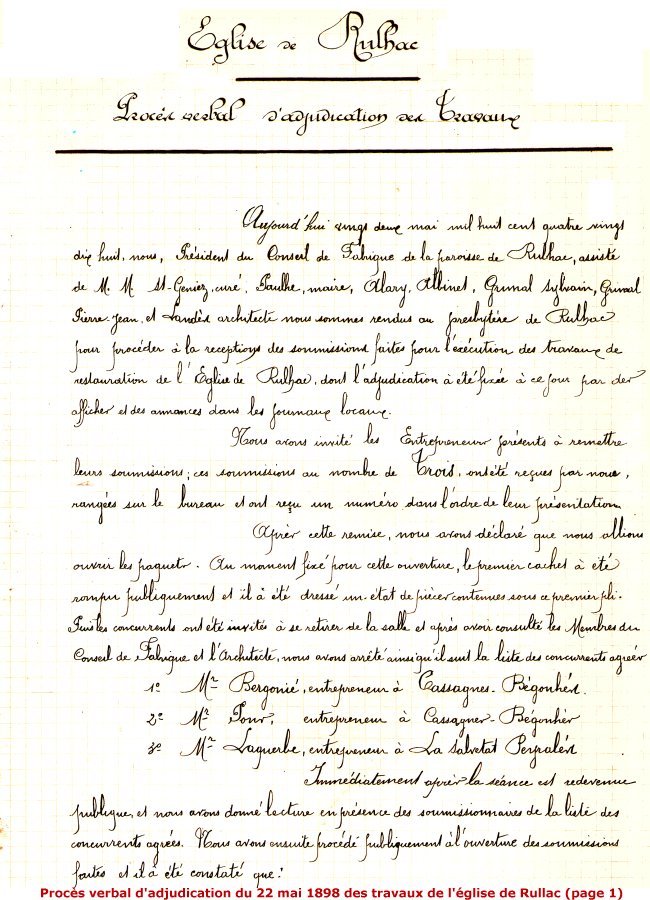 Eglise de Rulhac
Procès verbal d'adjudication des Travaux
Aujourd'hui vingt deux mai mil huit cent quatre vingt
dix huit, nous, Président du Conseil de Fabrique de la paroisse de Rulhac, assisté
de M. M St-Geniez, curé, Paulhe, maire, Alary, Albinet, Grimal Sylvain, Grimal
Pierre-Jean, et Landès architecte nous sommes rendus au presbytère de Rulhac
pour procéder à la receptions des soumissions faites pour l'éxécution des travaux de
restauration de l'Eglise de Rulhac, dont l'adjudication à été fixée à ce jour par des
affiches et des annonces dans les journaux locaux.
Nous avons invité les Entrepreneurs présents à remettre
leurs soumissions; ces soumissions au nombre de Trois, ont été reçues par nous,
rangées sur le bureau et ont reçu un numéro dans l'ordre de leur présentation
Après cette remise, nous avons déclaré que nous allions
ouvrir les paquets. Au moment fixé pour cette ouverture, le premier cachet à été
rompu publiquement et il à été dressé un état de pièces contenues sous ce premier pli.
Puis les concurrents ont été invités à se retirer de la salle et après avoir consulté les Membres du
Conseil de Fabrique et l'Architecte, nous avons arrêté ainsi qu'il suit la liste des concurrents agréés
1º Mr Bergonié, entrepreneur à Cassagnes-Bégonhès.
2º Mr Pons, entrepreneur à Cassagnes-Bégonhès
3º Mr Laguerbe, entrepreneur à La Salvetat Peyralès
Immédiatement après la séance est redevenue
publique, et nous avons donné lecture en présence des soumissionnaires de la liste des
concurrents agréés. Nous avons ensuite procédé publiquement à l'ouverture des soumissions
faites et il à été constaté que:
Procès verbal d'adjudication du 22 mai 1898 des travaux de l'église de Rullac (page 1)